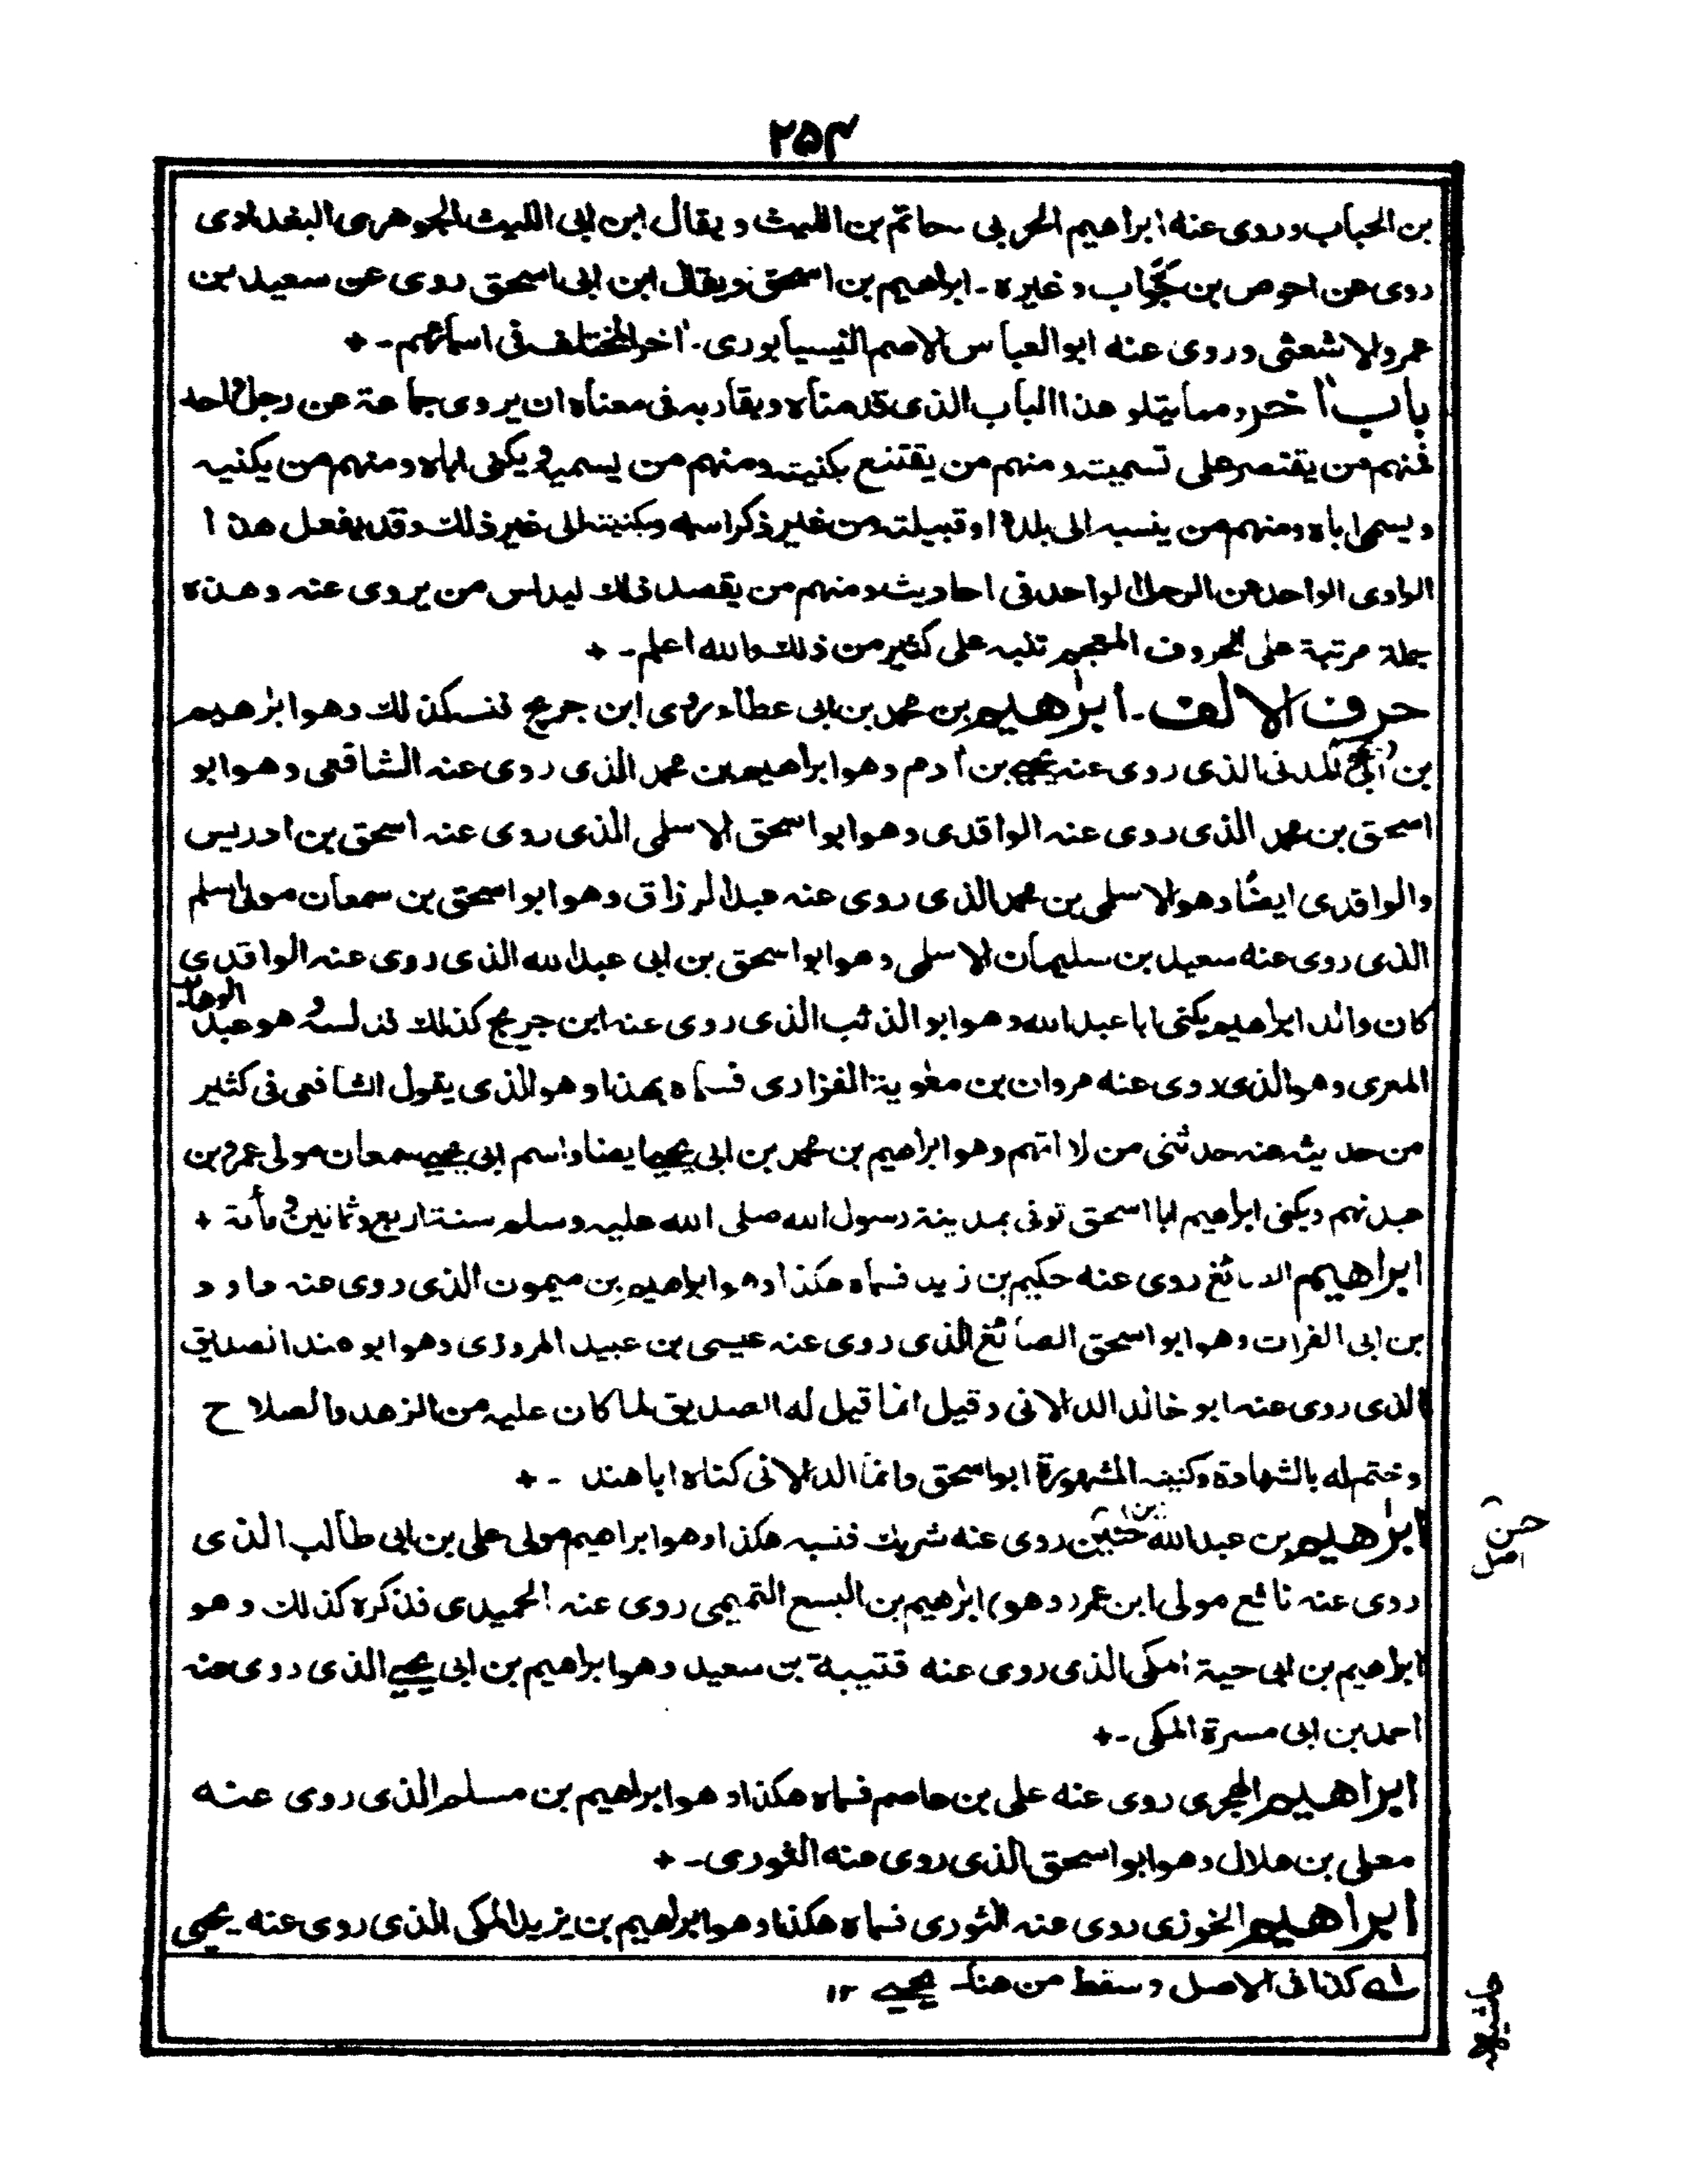 ٢٥٤
بن الحباب وروى عنه ابراهيم الحربى ـ حاتم بن الليث ويقال ابن ابى الليث الجوهرى البغدادى
روى عن احوص بن جوّاب وغيره ـ ابراهيم بن اسحق ويقال ابن ابى اسحق روى عن سعيد بن
عمرو الاشعثى وروى عنه ابو العباس الاصم النيسابورى ـ اخر المختلف فى اسمائهم ـ +
باب اٰخر ومما يتلو هذا الباب الذى قدمناه ويقاربه فى معناه ان يروى جماعة عن رجل واحد
فمنهم من يقتصر على تسميته ومنهم من يقتنع بكنيته ومنهم من يسميه ويكنى اباه ومنهم من يكنيه
ويسمى اباه ومنهم من ينسبه الى بلده او قبيلته من غير ذكر اسمه وكنيته الى غير ذلك وقد يفعل هذا
الراوى الواحد عن الرجل الواحد فى احاديث ومنهم من يقصد ذلك ليدلس من يروى عنه وهذه
جملة مرتبة على الحروف المعجم تنبه على كثير من ذلك والله اعلم ـ +
حرف الالف ـ ابرٰهيم بن محمد بن ابى عطاء روى ابن جريج فنسبه كذلك وهو ابرٰهيم
بن ابى يحيى المدنى الذى روى عنه يحيى بن اٰدم وهو ابراهيم بن محمد الذى روى عنه الشافعى وهو ابو
اسحق بن محمد الذى روى عنه الواقدى وهو ابو اسحق الاسلمى الذى روى عنه اسحق بن ادريس
والواقدى ايضًا وهو الاسلمى بن محمد الذى روى عنه عبد الرزاق وهو ابو اسحق بن سمعان مولى اسلم
الذى روى عنه سعيد بن سليمان الاسلمى وهو ابو اسحق بن ابى عبد الله الذى روى عنه الواقدى
كان والد ابراهيم يكنى ابا عبد الله وهو ابو الذئب الذى روى عنه ابن جريج كذلك تدلسه وهو عبد الوهاب
المعرى وهو الذى روى عنه مروان بن معٰوية الفزارى فسماه بهذا وهو الذى يقول الشافعى فى كثير
من حديثه عنه حدثنى من لا اتهم وهو ابراهيم بن محمد بن ابى يحيى ايضا واسم ابى يحيى سمعان مولى عمرو بن
عبد نهم ويكنى ابراهيم ابا اسحق توفى بمدينة رسول الله صلى الله عليه وسلم سنة اربع وثمانين ومأة +
ابراهيم الصائغ روى عنه حكيم بن زيد فسماه هكذا وهو ابراهيم بن ميمون الذى روى عنه داود
بن ابى الفرات وهو ابو اسحق الصائغ الذى روى عنه عيسى بن عبيد المروزى وهو ابو هند الصديق
الذى روى عنه ابو خالد الدالانى وقيل انما قيل له الصديق لما كان عليه من الزهد والصلاح
وختم له بالشهادة وكنيته المشهورة ابو اسحق وانما الدالانى كناه ابا هند ـ +
ابرٰهيم بن عبد الله بن حنين روى عنه شريك فنسبه هكذا وهو ابراهيم مولى على بن ابى طالب الذى
روى عنه نافع مولى ابن عمر (وهو) ابرٰهيم بن اليسع التميمى روى عنه الحميدى فذكره كذلك وهو
ابراهيم بن ابى حية المكى الذى روى عنه قتيبة بن سعيد وهو ابراهيم بن ابى يحيى الذى روى عنه
احمد بن ابى مسرة المكى ـ +
ابراهيم الهجرى روى عنه على بن عاصم فسماه هكذا وهو ابراهيم بن مسلم الذى روى عنه
معلى بن هلال وهو ابو اسحق الذى روى عنه الثورى ـ +
ابراهيم الخوزى روى عنه الثورى فسماه هكذا وهو ابراهيم بن يزيد المكى الذى روى عنه يحيى
له كذا فى الاصل وسقط من هنا ـ يحيى ١٢
حسن
اصل
حاشيه